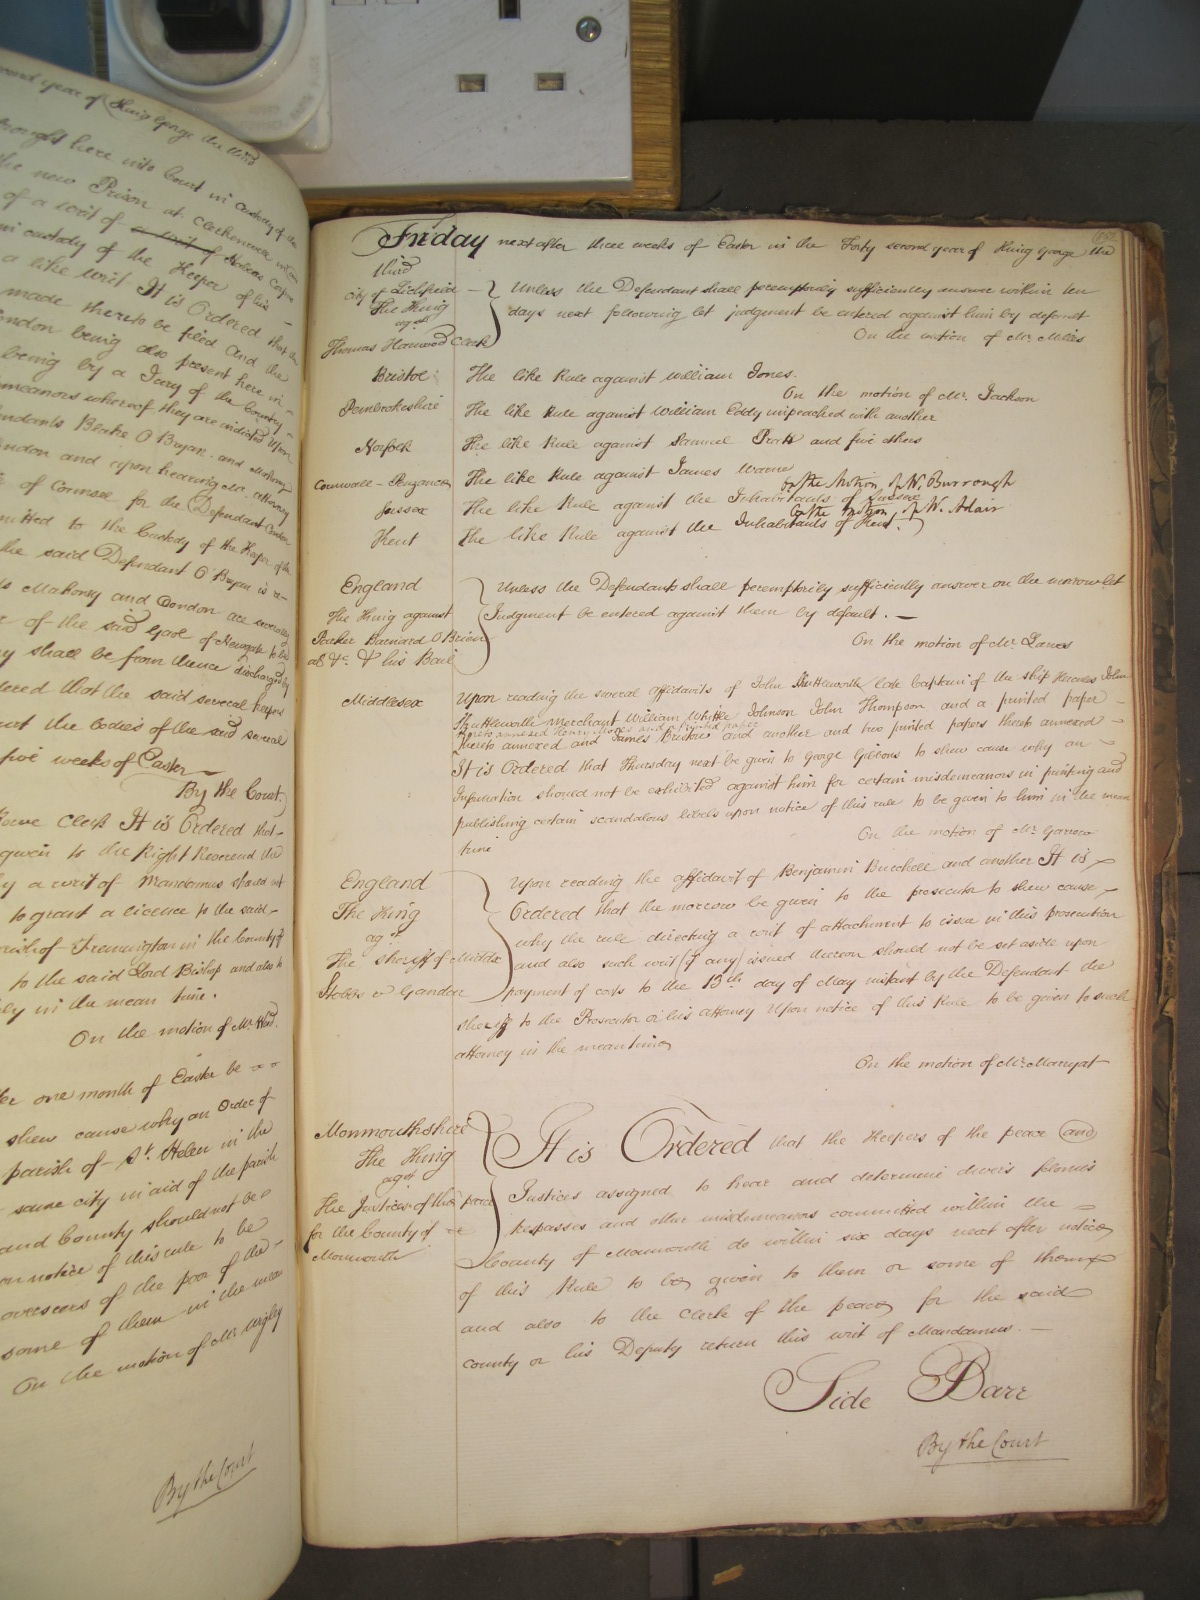 second year of King George the third
brought here into Court in custody of the
the new Prison at Clerkenwell
of a writ of a writ of Habeas Corpus
in custody of the Keeper of his
a like writ It is Ordered that the
made thereto be filed And the
London being also present here in
being by a Jury of the Country
misdemeanors whereof they are indicted Upon
Defendants Blake O Bryan and Mahony
London and upon hearing Mr. Attorney
of Counsel for the Defendant
committed to the Custody of the Keeper of the
the said Defendant O Bryan is re-
Mahony and Condon are severally
of the said Gaol of Newgate to be
they shall be from thence discharged by
Ordered that the said several keepers
the bodies of the said several
five weeks of Easter
By the Court
Clerk It is Ordered that
given to the Right Reverend the
why a writ of Mandamus should not
to grant a licence to the said
parish of Fremington in the County of
to the said Lord Bishop and also to
in the mean time.
On the motion of Mr.
after one month of Easter be
shew cause why an Order of
parish of St. Helen in the
same city in aid of the parish
and County should not be
upon notice of this rule to be
overseers of the poor of the
some of them in the mean
On the motion of Mr. Wigley
By the Court
Friday next after three weeks of Easter in the Forty second year of King George the
third
City of Lichfield
The King
agst
Thomas Harwood Clerk
Unless the Defendant shall peremptorily sufficiently answer within ten
days next following let judgment be entered against him by default
On the motion of Mr. Milles
Bristol The like Rule against William Jones.
On the motion of Mr. Jackson
Pembrokeshire The like Rule against William Eddy impeached with another
Norfolk The like Rule against Samuel Pratt and five others
Cornwall - Penzance The like Rule against James Warne
On the Motion of W. Burrough
Sussex The like Rule against the Inhabitants of Sussex
On the motion of W. Adair
Kent The like Rule against the Inhabitants of Kent.
England
The King against
Parker Barnard O Brien
als &c. & his Bail
Unless the Defendants shall peremptorily sufficiently answer on the morrow let
Judgment be entered against them by default.
On the motion of Mr. Lawes
Middlesex Upon reading the several affidavits of John Shuttleworth late Captain of the ship Hercules John
Shuttleworth Merchant William Whittle Johnson John Thompson and a printed paper
thereto annexed Henry Moses and a printed paper
thereto annexed and James Bristow and another and two printed papers thereto annexed
It is Ordered that Thursday next be given to George Gibbons to shew cause why an
Information should not be exhibited against him for certain misdemeanors in printing and
publishing certain scandalous libels upon notice of this rule to be given to him in the mean
time
On the motion of Mr. Garrow
England
The King
agst
The Sheriff of Middx
Hobbs v Gandon
Upon reading the affidavit of Benjamin Burchell and another It is
Ordered that the morrow be given to the prosecutor to shew cause
why the rule directing a writ of attachment to issue in this prosecution
and also such writ (if any) issued thereon should not be set aside upon
payment of costs to the 13th day of May instant by the Defendant the
sheriff to the Prosecutor or his attorney Upon notice of this Rule to be given to such
attorney in the meantime
On the motion of Mr. Marryat
Monmouthshire
The King
agst
The Justices of the peace
for the County of
Monmouth
It is Ordered that the Keepers of the peace and
Justices assigned to hear and determine divers felonies
trespasses and other misdemeanors committed within the
County of Monmouth do within six days next after notice
of this Rule to be given to them or some of them
and also to the Clerk of the peace for the said
county or his Deputy return this writ of Mandamus.
Side Barr
By the Court